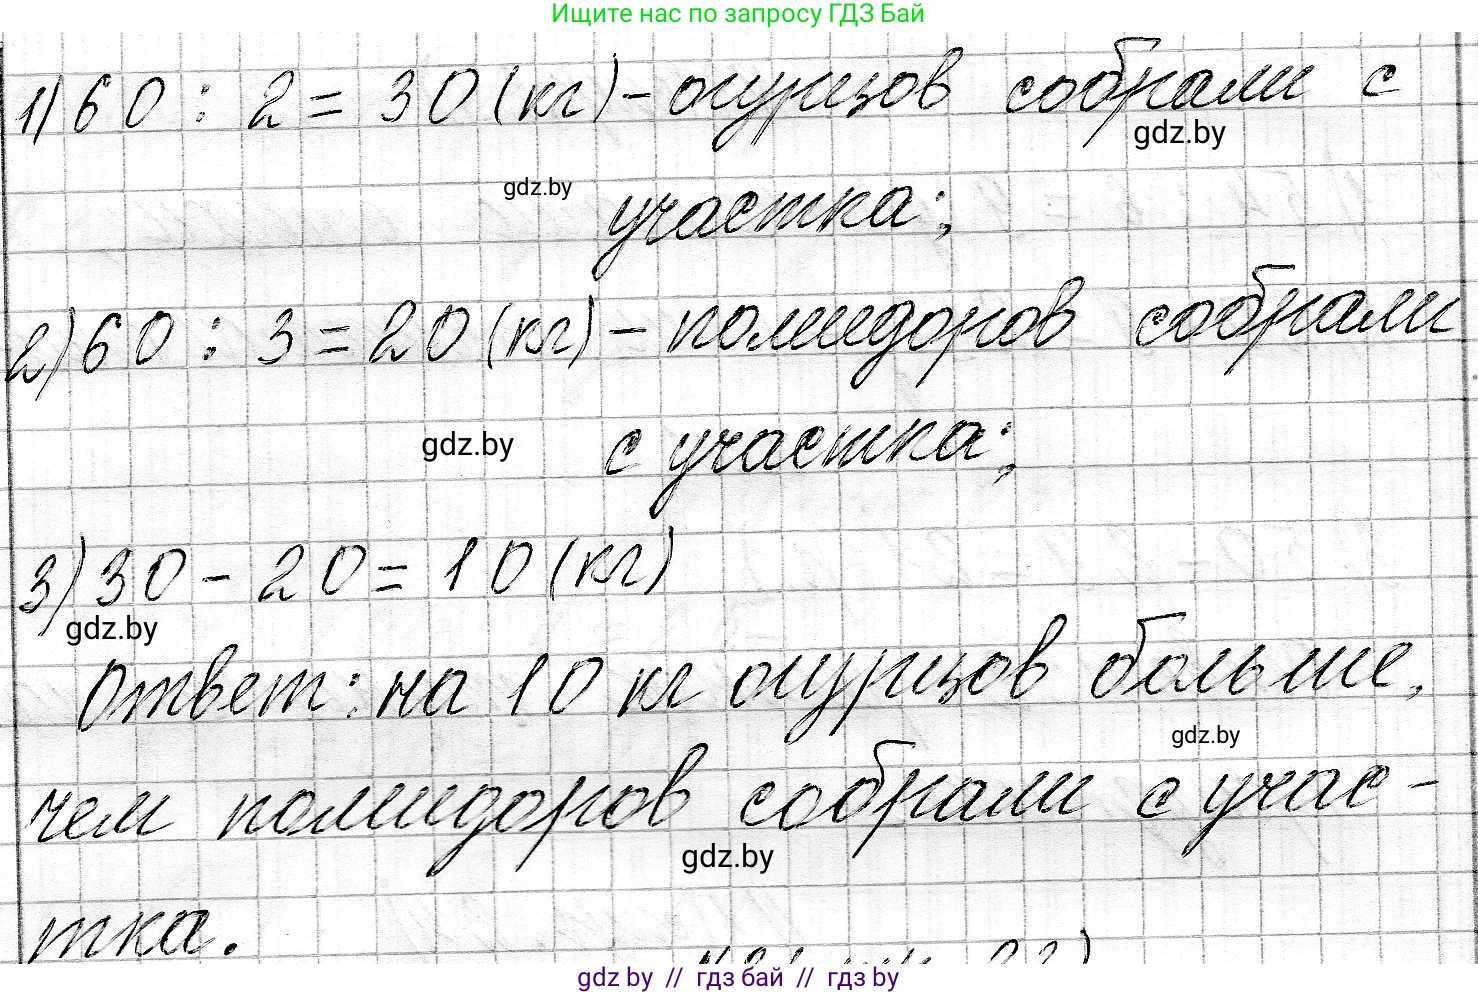 Ищите нас по запросу ГДЗ Бай
1) 60 : 2 = 30 (кг) - огурцов собрали с
gdz.by
gdz.by
участка;
2) 60 : 3 = 20 (кг) - помидоров собрали
gdz.by
с участка;
3) 30 - 20 = 10 (кг)
gdz.by
Ответ: на 10 кг огурцов больше,
gdz.by
чем помидоров собрали с учас-
gdz.by
тка.
gdz.by // гдз бай // гдз by